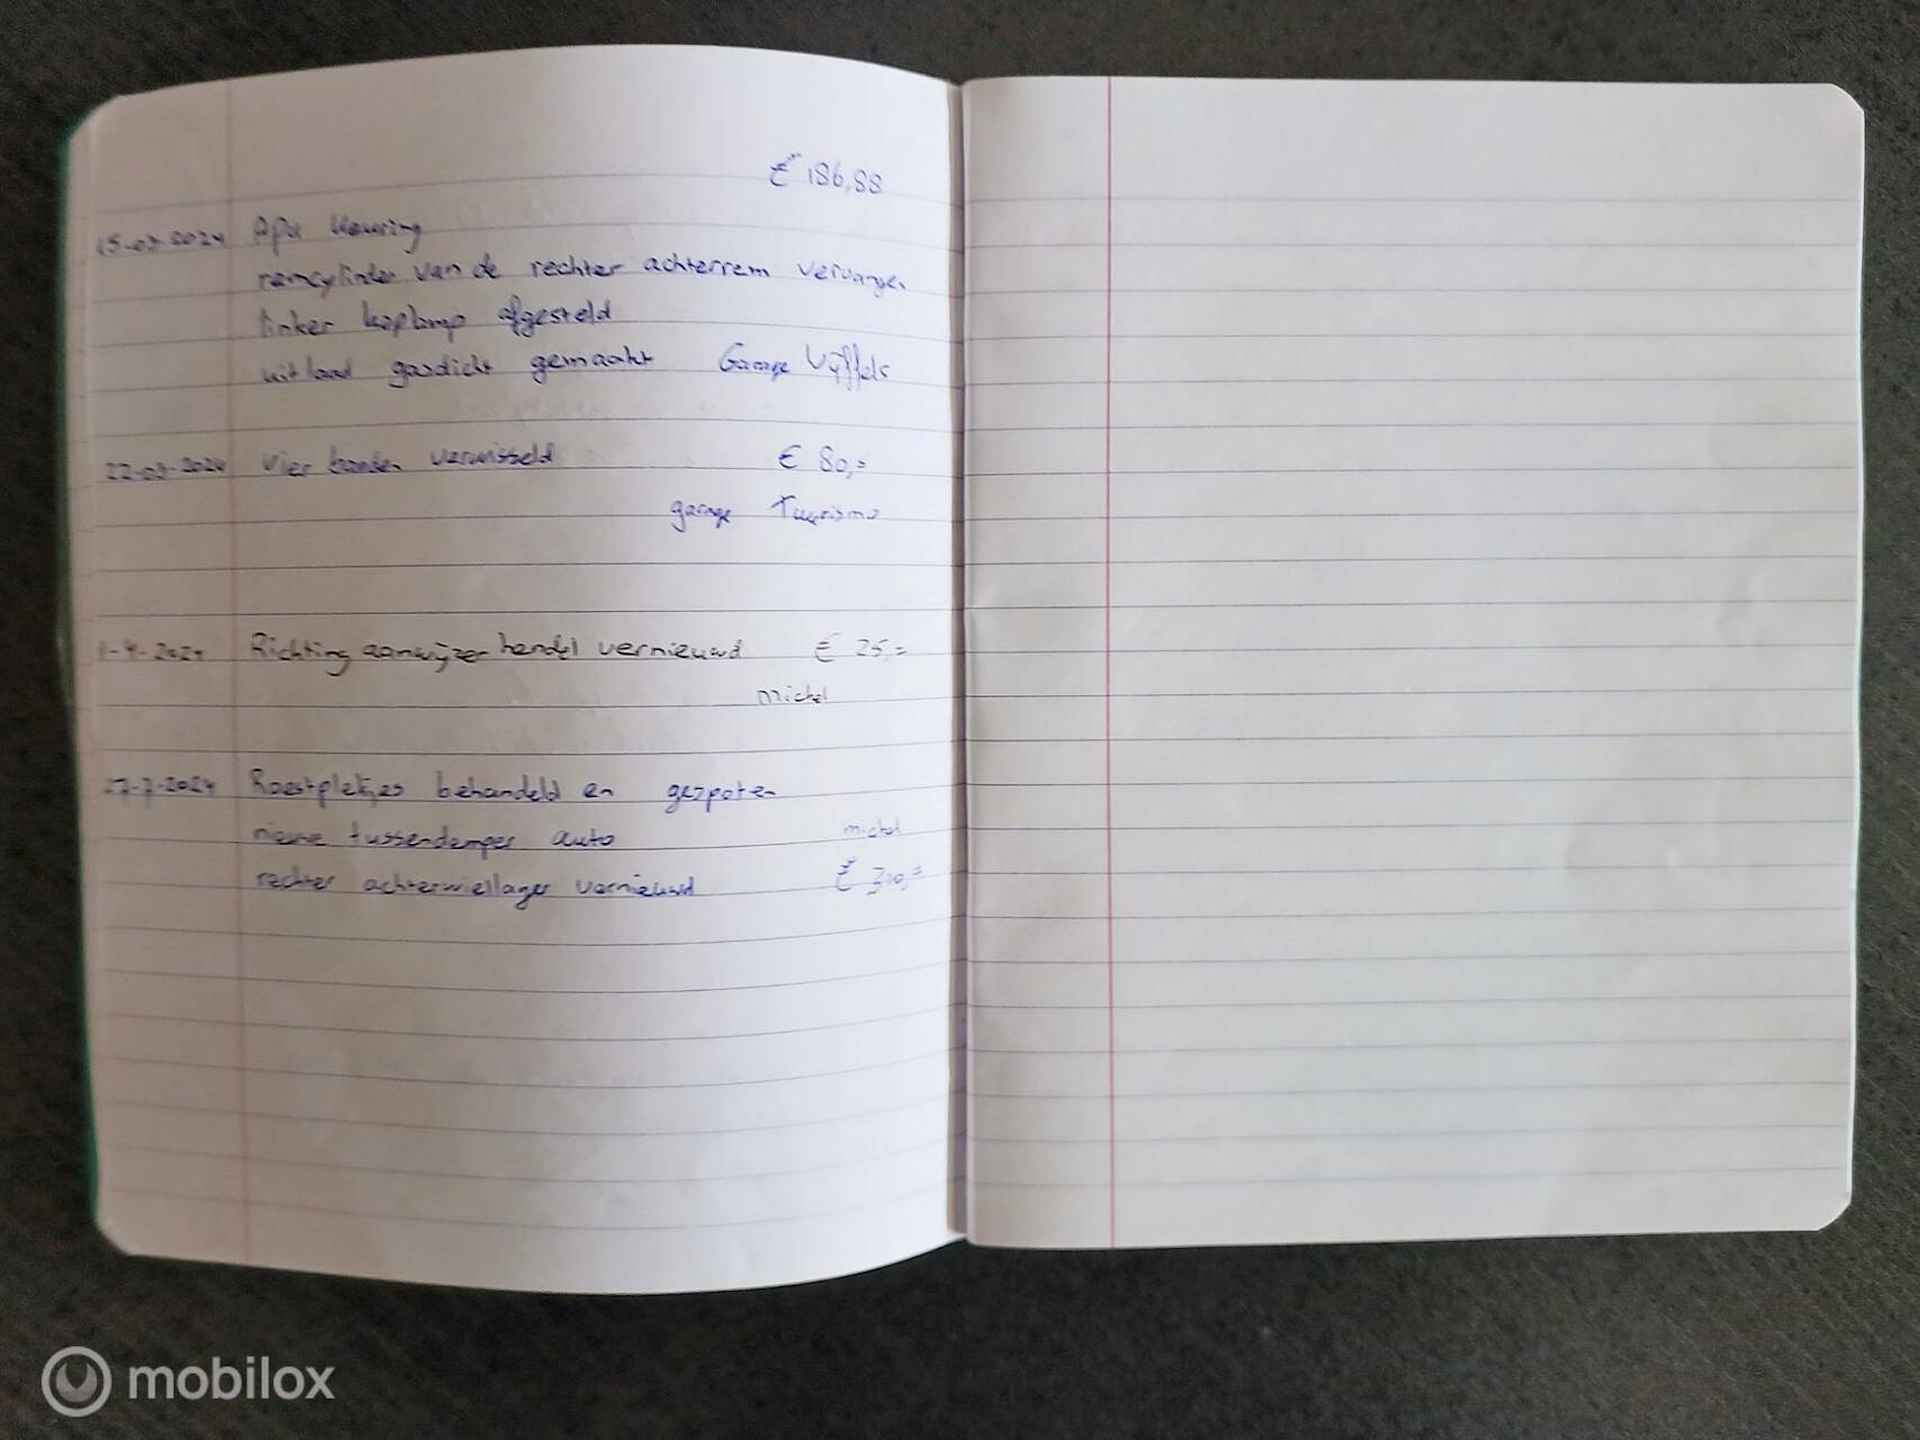 € 186,88
15-03-2024 APK Keuring
remcylinder van de rechter achterrem vervangen
linker koplamp afgesteld
uitlaat gasdicht gemaakt Garage Vijffels
22-03-2024 Vier banden verwisseld € 80,=
garage Tuurismo
1-4-2024 Richting aanwijzer hendel vernieuwd € 25,=
michel
27-7-2024 Roestplekjes behandeld en gespoten
nieuwe tussendemper auto michel
rechter achterwiellager vernieuwd €
mobilox